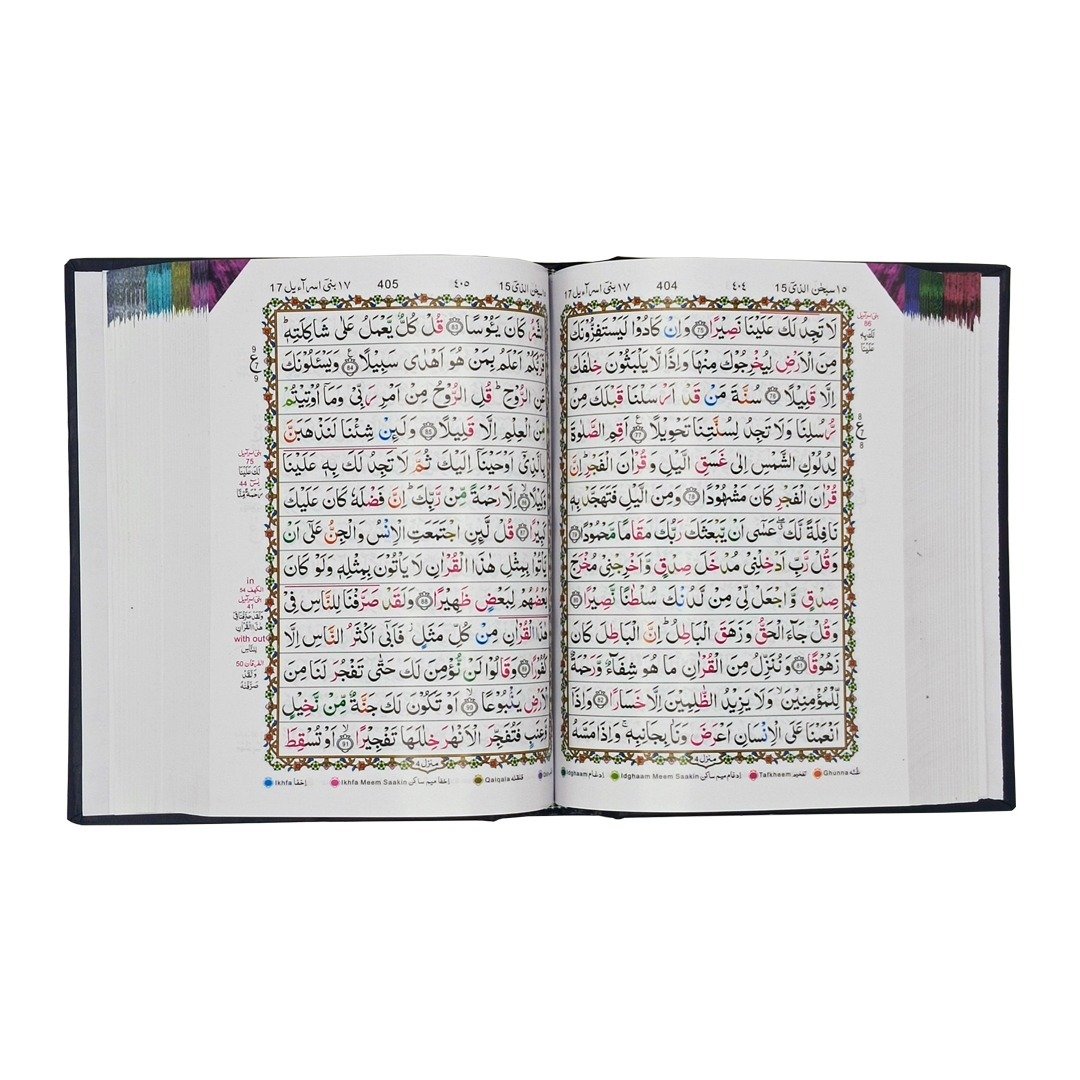 ١٥ سبحٰن الذی 15 ٤٠٤ 404 ١٧ بنی اسرآءیل 17
لَا تَجِدُ لَكَ عَلَيْنَا نَصِيْرًا ٧٥ وَاِنْ كَادُوْا لَيَسْتَفِزُّوْنَكَ
مِنَ الْاَرْضِ لِيُخْرِجُوْكَ مِنْهَا وَاِذًا لَّا يَلْبَثُوْنَ خِلٰفَكَ
اِلَّا قَلِيْلًا ٧٦ سُنَّةَ مَنْ قَدْ اَرْسَلْنَا قَبْلَكَ مِنْ
رُّسُلِنَا وَلَا تَجِدُ لِسُنَّتِنَا تَحْوِيْلًا ٧٧ اَقِمِ الصَّلٰوةَ
لِدُلُوْكِ الشَّمْسِ اِلٰى غَسَقِ الَّيْلِ وَقُرْاٰنَ الْفَجْرِ اِنَّ
قُرْاٰنَ الْفَجْرِ كَانَ مَشْهُوْدًا ٧٨ وَمِنَ الَّيْلِ فَتَهَجَّدْ بِهٖ
نَافِلَةً لَّكَ عَسٰٓى اَنْ يَّبْعَثَكَ رَبُّكَ مَقَامًا مَّحْمُوْدًا ٧٩
وَقُلْ رَّبِّ اَدْخِلْنِيْ مُدْخَلَ صِدْقٍ وَّاَخْرِجْنِيْ مُخْرَجَ
صِدْقٍ وَّاجْعَلْ لِّيْ مِنْ لَّدُنْكَ سُلْطٰنًا نَّصِيْرًا ٨٠
وَقُلْ جَآءَ الْحَقُّ وَزَهَقَ الْبَاطِلُ اِنَّ الْبَاطِلَ كَانَ
زَهُوْقًا ٨١ وَنُنَزِّلُ مِنَ الْقُرْاٰنِ مَا هُوَ شِفَآءٌ وَّرَحْمَةٌ
لِّلْمُؤْمِنِيْنَ وَلَا يَزِيْدُ الظّٰلِمِيْنَ اِلَّا خَسَارًا ٨٢ وَاِذَآ
اَنْعَمْنَا عَلَى الْاِنْسَانِ اَعْرَضَ وَنَاٰ بِجَانِبِهٖ وَاِذَا مَسَّهُ
منزل ٤
Idghaam ادغام Idghaam Meem Saakin ادغام میم ساکن Tafkheem تفخیم Ghunna غنّه
بنی اسرآئیل
86
لَكَ بِهٖ
عَلَيْنَا
8
ع
8
سبحٰن الذی 15 ٤٠٥ 405 ١٧ بنی اسرآءیل 17
الشَّرُّ كَانَ يَـُٔوْسًا ٨٣ قُلْ كُلٌّ يَّعْمَلُ عَلٰى شَاكِلَتِهٖ
فَرَبُّكُمْ اَعْلَمُ بِمَنْ هُوَ اَهْدٰى سَبِيْلًا ٨٤ وَيَسْـَٔلُوْنَكَ
عَنِ الرُّوْحِ قُلِ الرُّوْحُ مِنْ اَمْرِ رَبِّيْ وَمَآ اُوْتِيْتُمْ
مِّنَ الْعِلْمِ اِلَّا قَلِيْلًا ٨٥ وَلَئِنْ شِئْنَا لَنَذْهَبَنَّ
بِالَّذِيْٓ اَوْحَيْنَآ اِلَيْكَ ثُمَّ لَا تَجِدُ لَكَ بِهٖ عَلَيْنَا
وَكِيْلًا ٨٦ اِلَّا رَحْمَةً مِّنْ رَّبِّكَ اِنَّ فَضْلَهٗ كَانَ عَلَيْكَ
كَبِيْرًا ٨٧ قُلْ لَّئِنِ اجْتَمَعَتِ الْاِنْسُ وَالْجِنُّ عَلٰٓى اَنْ
يَّاْتُوْا بِمِثْلِ هٰذَا الْقُرْاٰنِ لَا يَاْتُوْنَ بِمِثْلِهٖ وَلَوْ كَانَ
بَعْضُهُمْ لِبَعْضٍ ظَهِيْرًا ٨٨ وَلَقَدْ صَرَّفْنَا لِلنَّاسِ فِيْ
هٰذَا الْقُرْاٰنِ مِنْ كُلِّ مَثَلٍ فَاَبٰٓى اَكْثَرُ النَّاسِ اِلَّا
كُفُوْرًا ٨٩ وَقَالُوْا لَنْ نُّؤْمِنَ لَكَ حَتّٰى تَفْجُرَ لَنَا مِنَ
الْاَرْضِ يَنْۢبُوْعًا ٩٠ اَوْ تَكُوْنَ لَكَ جَنَّةٌ مِّنْ نَّخِيْلٍ
وَّعِنَبٍ فَتُفَجِّرَ الْاَنْهٰرَ خِلٰلَهَا تَفْجِيْرًا ٩١ اَوْ تُسْقِطَ
منزل ٤
Ikhfa اخفا Ikhfa Meem Saakin اخفا میم ساکن Qalqala قلقله
9
ع
9
بنی اسرآئیل
75
لَكَ عَلَيْنَا
يٰسٓ 44
رَحْمَةً مِّنَّا
in
الكهف 54
بنی اسرآئیل
41
وَلَقَدْ صَرَّفْنَا فِيْ
هٰذَا الْقُرْاٰنِ
with out
لِلنَّاسِ
الفرقان 50
وَلَقَدْ
صَرَّفْنٰهُ